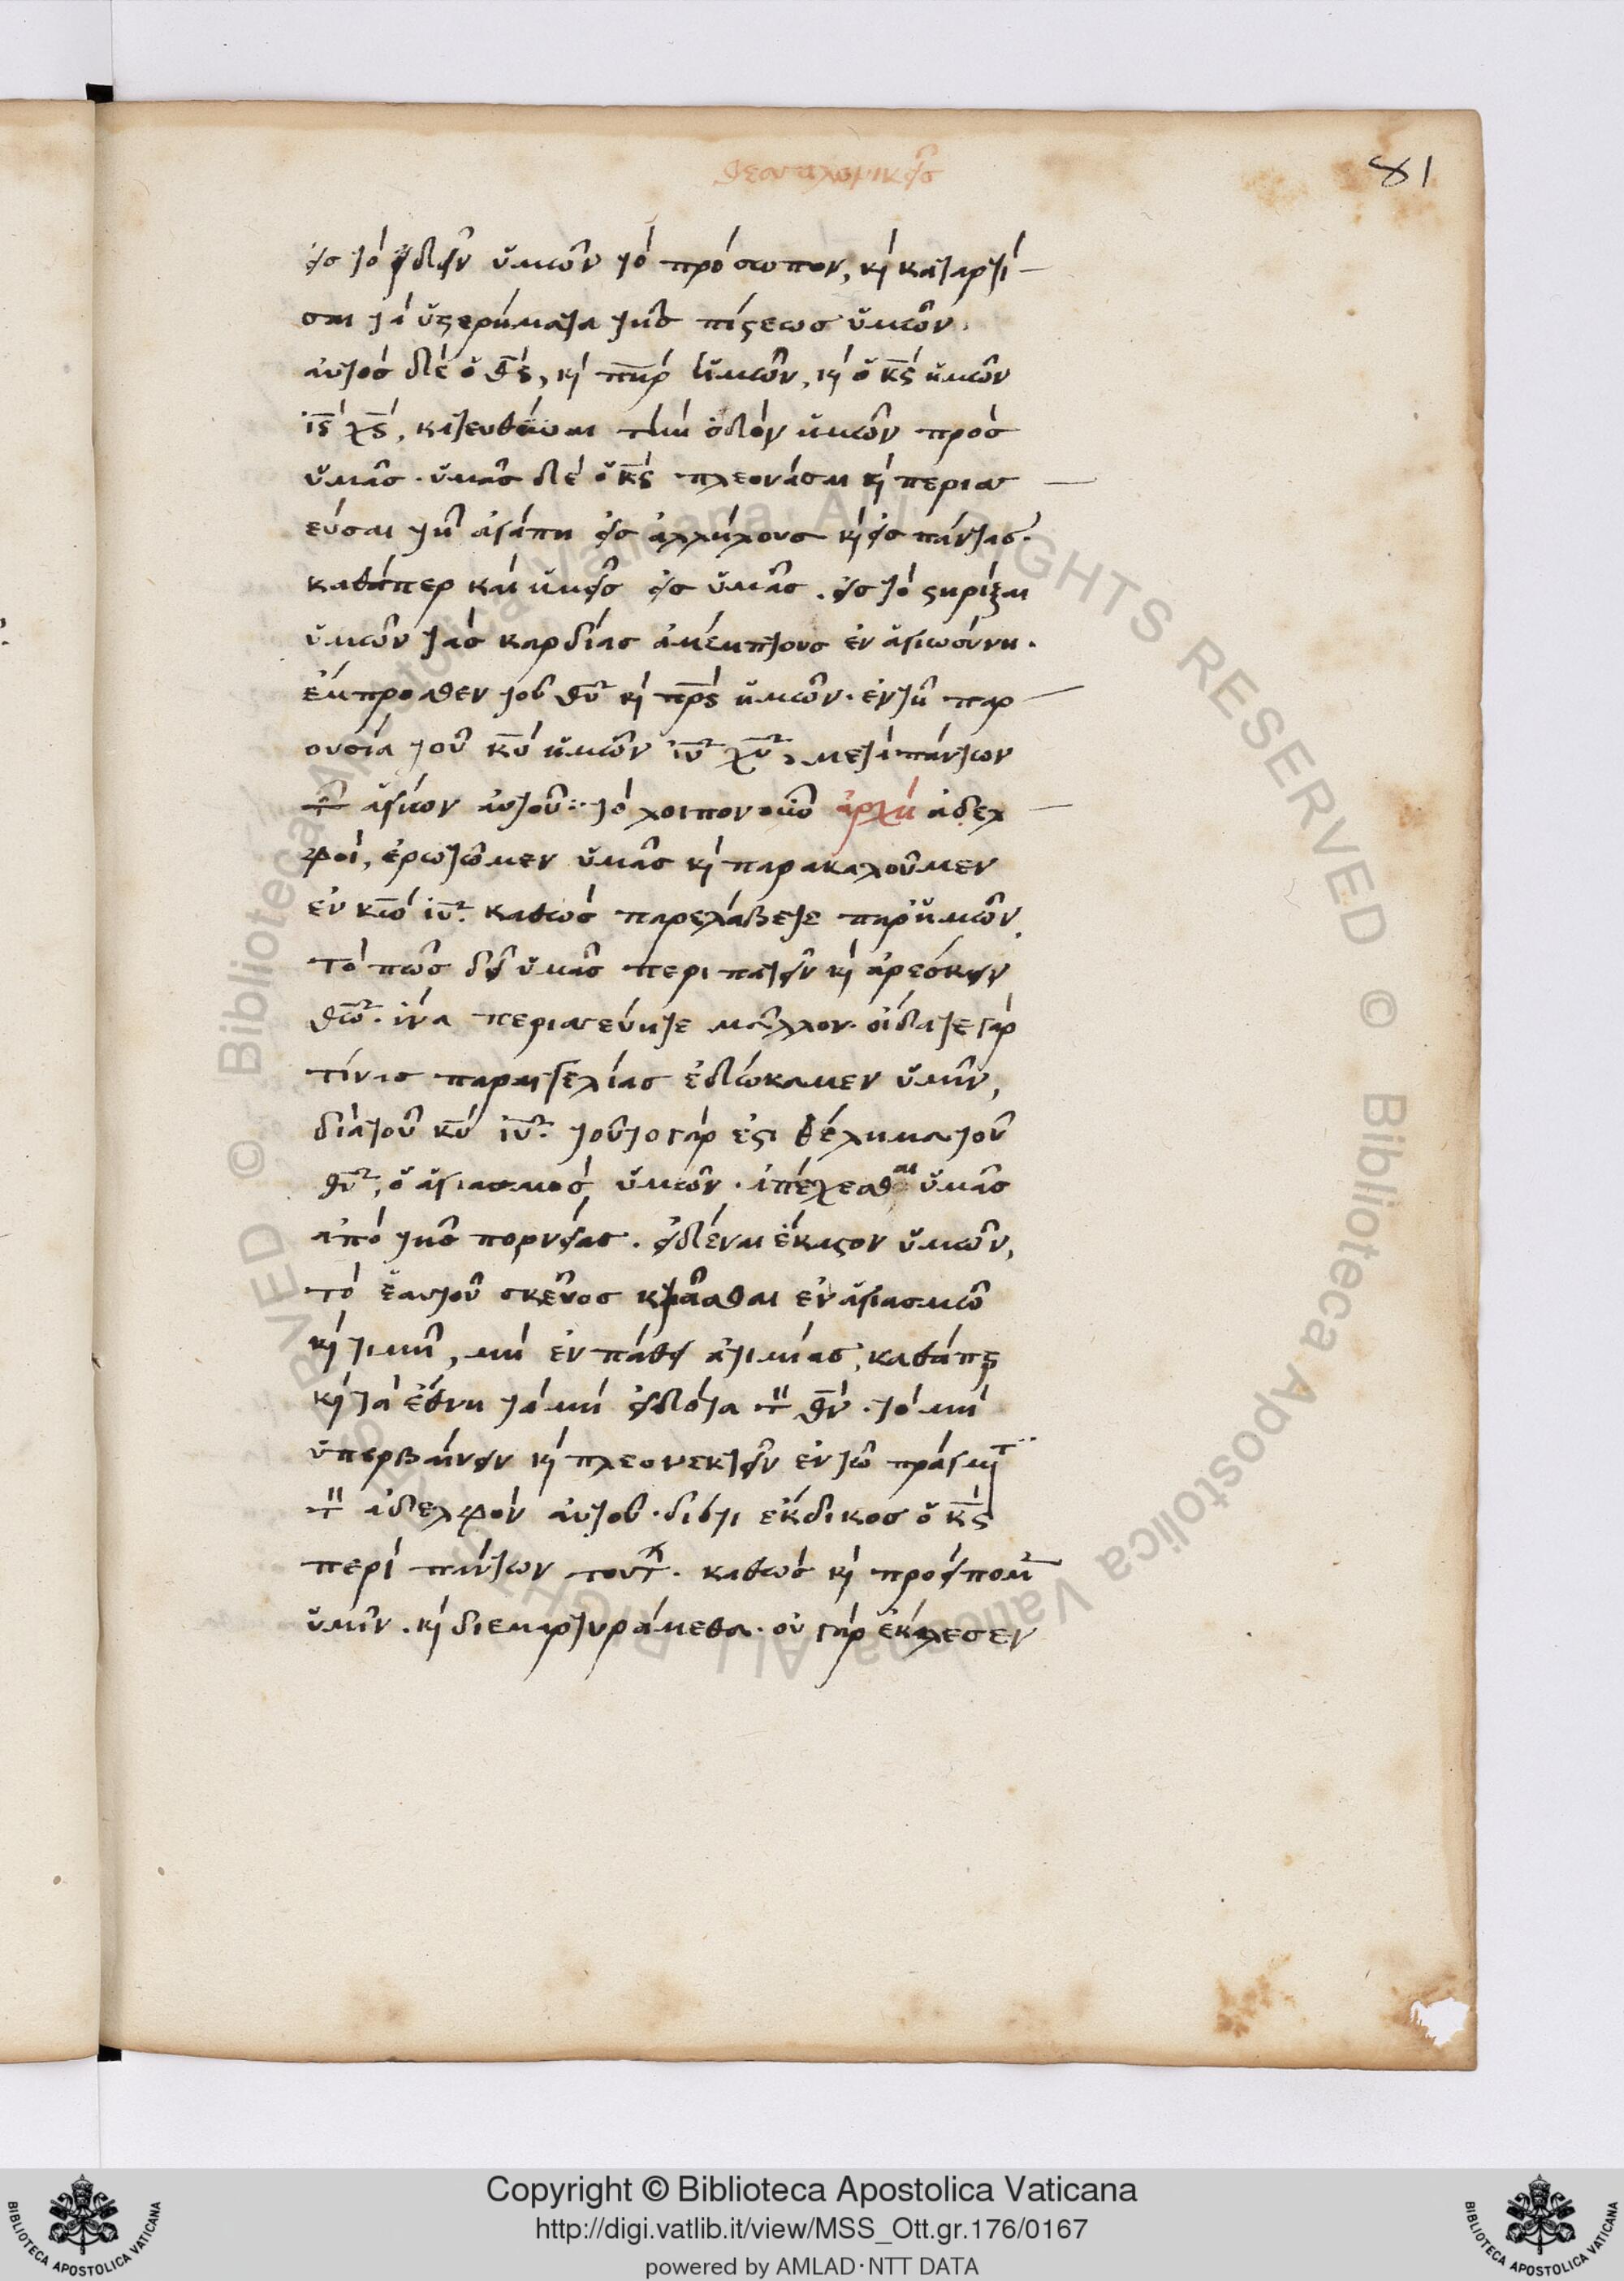 θεσσαλονικεῖς
81
εἰς τὸ ἰδεῖν ὑμῶν τὸ πρόσωπον, κ̀ καταρτί
σαι τὰ ὑστερήματα τῆς πίστεως ὑμῶν.
αὐτὸς δὲ ὁ θς̅, κ̀ πηρ̅ ἡμῶν, κ̀ ὁ κς̅ ἡμῶν
ις̅ χς̅, κατευθύναι τὴν ὁδὸν ἡμῶν πρὸς
ὑμᾶς· ὑμᾶς δὲ ὁ κς̅ πλεονάσαι κ̀ περισσ
εύσαι τῆ ἀγάπη εἰς ἀλλήλους κ̀ εἰς πάντας·
καθάπερ καὶ ἡμεῖς εἰς ὑμᾶς. εἰς τὸ στηρίξαι
ὑμῶν τὰς καρδίας ἀμέμπτους ἐν ἁγιωσύνη.
ἔμπροσθεν τοῦ θυ̅ κ̀ πρς̅ ἡμῶν· ἐν τῆ παρ
ουσία τοῦ κυ̅ ἡμῶν ιυ̅ χυ̅, μετὰ πάντων
τῶν ἁγίων αὐτοῦ: τὸ λοιπὸν οὖν ἀρχὴ ἀδελ
φοὶ, ἐρωτῶμεν ὑμᾶς κ̀ παρακαλοῦμεν
ἐν κω̅ ιυ̅. καθὼς παρελάβετε παρ' ἡμῶν.
τὸ πῶς δεῖ ὑμᾶς περιπατεῖν κ̀ ἀρέσκειν
θω̅. ἵνα περισσεύητε μᾶλλον. οἴδατε γὰρ
τίνας παραγγελίας ἐδώκαμεν ὑμῖν,
διὰ τοῦ κυ̅ ιυ̅. τοῦτο γάρ ἐστι θέλημα τοῦ
θυ̅, ὁ ἁγιασμὸς ὑμῶν. ἀπέχεσθαι ὑμᾶς
ἀπὸ τῆς πορνείας. εἰδέναι ἕκαστον ὑμῶν,
τὸ ἑαυτοῦ σκεῦος κτᾶσθαι ἐν ἁγιασμῶ
κ̀ τιμῆ, μὴ ἐν πάθει ἀτιμίας, καθάπερ
κ̀ τὰ ἔθνη τὰ μὴ εἰδότα τὸν θν̅. τὸ μὴ
ὑπερβαίνειν κ̀ πλεονεκτεῖν ἐν τῶ πράγματι
τὸν ἀδελφὸν αὐτοῦ. διότι ἔκδικος ὁ κς̅
περὶ πάντων τούτων. καθὼς κ̀ προείπομεν
ὑμῖν. κ̀ διεμαρτυράμεθα. οὐ γὰρ ἐκάλεσεν
Copyright © Biblioteca Apostolica Vaticana
http://digi.vatlib.it/view/MSS_Ott.gr.176/0167
powered by AMLAD·NTT DATA
© Biblioteca Apostolica Vaticana ALL RIGHTS RESERVED
BIBLIOTECA APOSTOLICA VATICANA
BIBLIOTECA APOSTOLICA VATICANA